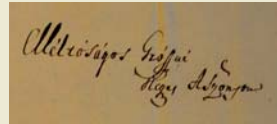 Méltóságos Gróffné
Nagy Aszszonyom